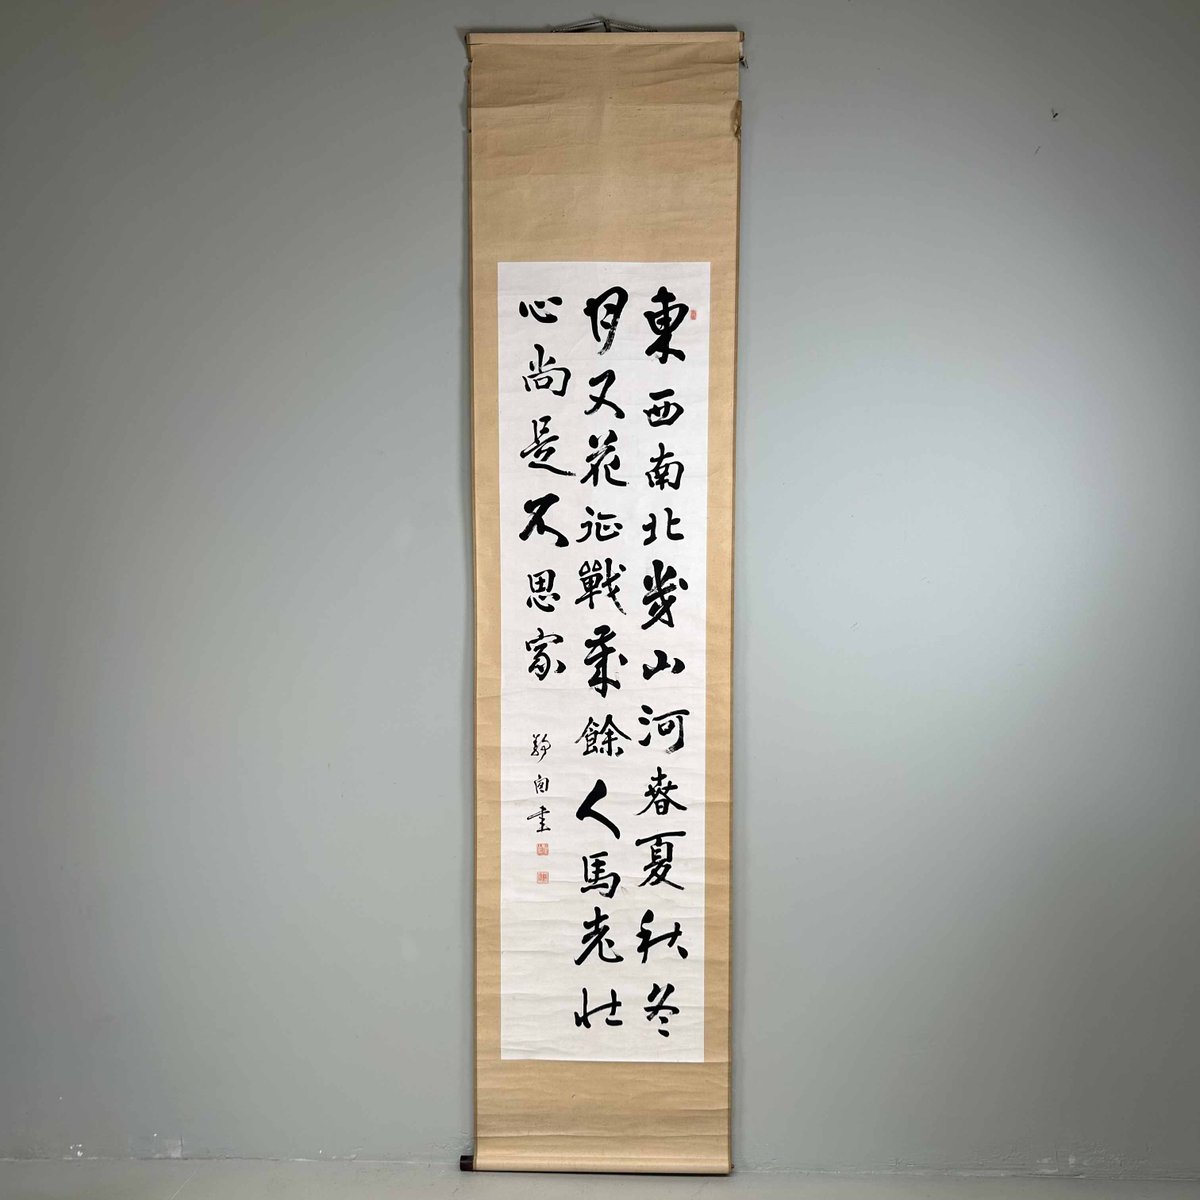 東西南北幾山河春夏秋冬
月又花征戰歲餘人馬老壯
心尚是不思家
書